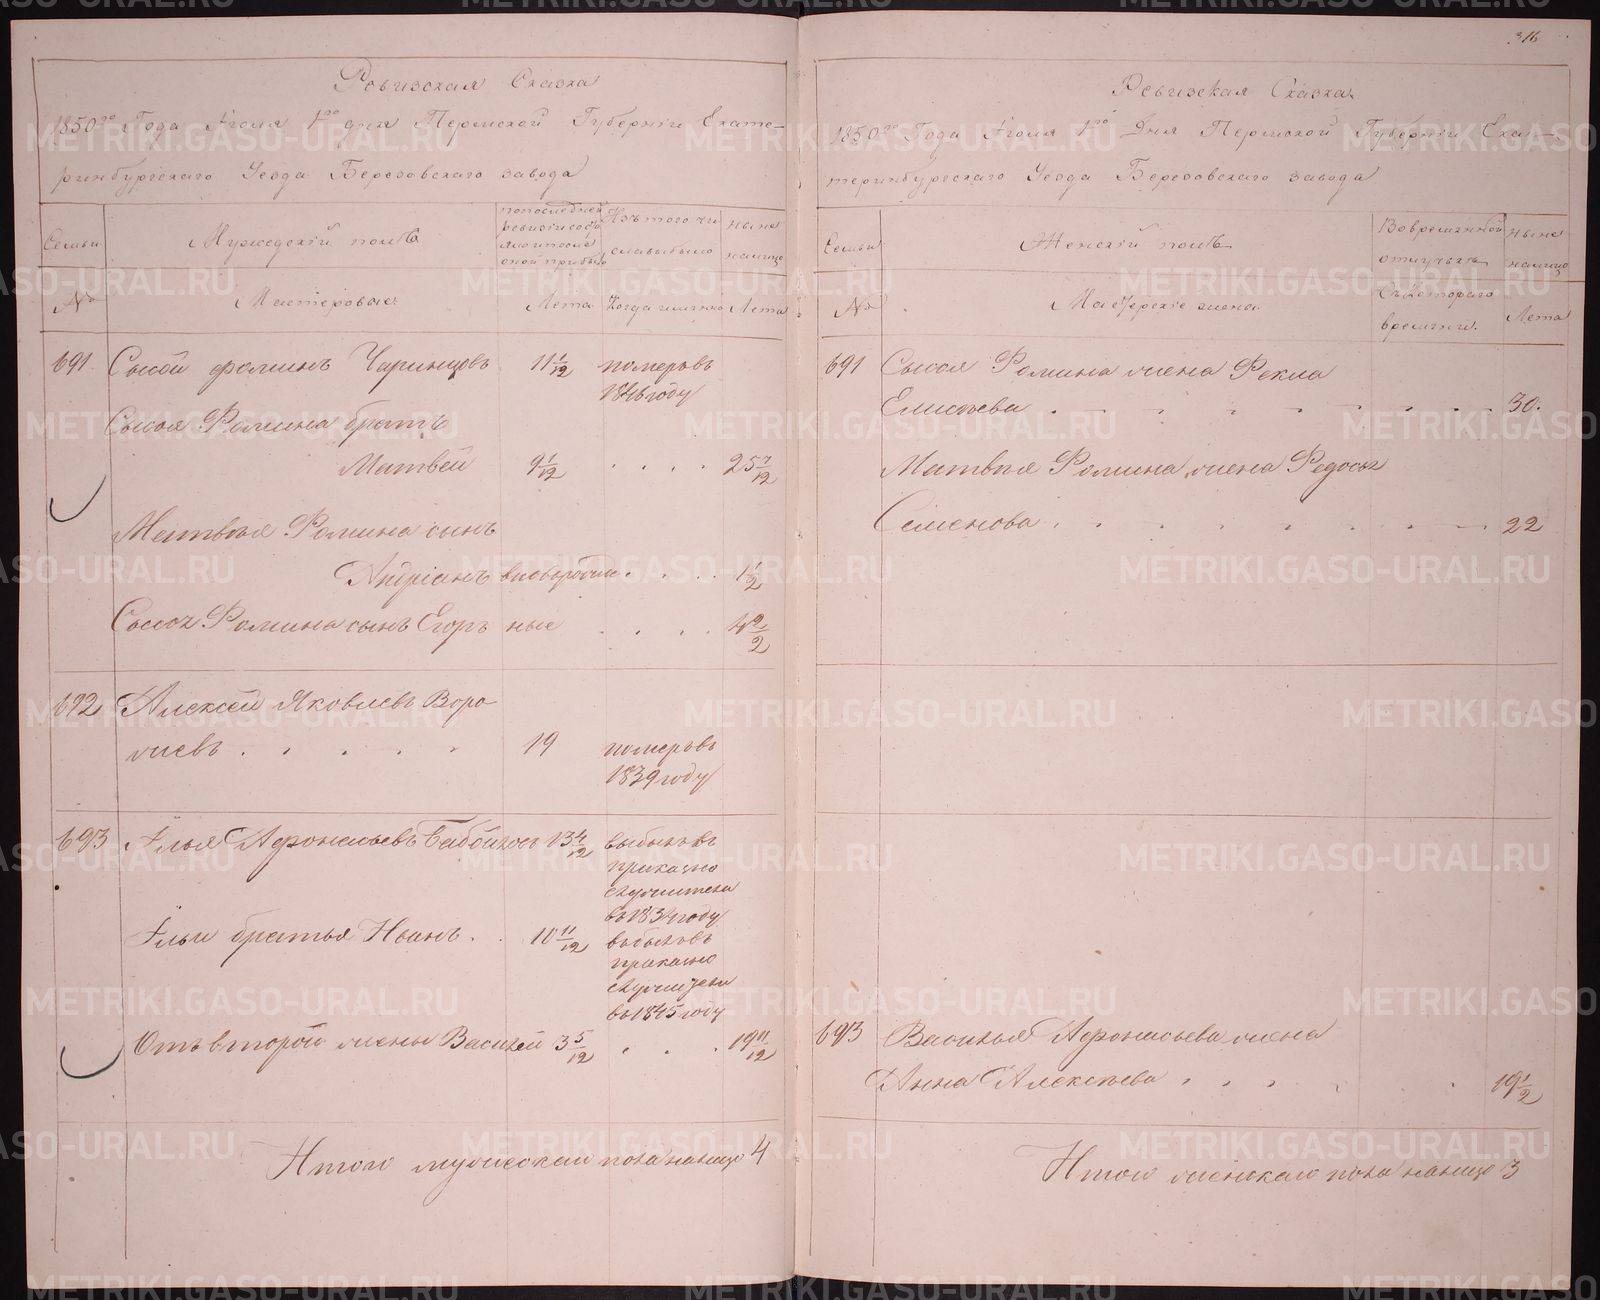 Ревизская Сказка
1850го Года Июля 1го дня Пермской Губернiи Екате-
ринбургскаго Уезда Березовскаго завода
Семьи
Мужескiй полъ
попоследней
ревизiи состо
яло ипосле
оной прибыло
Изъ того чи
сла выбыло
ныне
налицо
№
Мастеровые
Лета
Когда именно
Лета
691
Сысой Фоминъ
11 1/12
померъ въ
1846 году
Сысоя Фомина братъ
Матвей
9 1/12
25 7/12
Матвея Фомина сынъ
Андрiанъ вновь рожден
1 1/2
Сысоя Фомина сынъ Егоръ ные
692
Алексей Яковлевъ Воро
жевъ
19
померъ въ
1839 году
693
Илья Афонасьевъ
13 4/12
выбылъ въ
приказно
служители
въ 1834 году
Ильи братья Иванъ
10 11/12
выбылъ въ
приказно
служители
въ 1845 году
Отъ второй жены Василей
3 5/12
19 11/12
Итого мужеска пола налицо 4
316
Ревизская Сказка
1850го Года Июля 1го Дня Пермской Губернiи Ека-
теринбургскаго Уезда Березовскаго завода
Семьи
Женскiй полъ
Во временной
отлучке
ныне
налицо
№
Мастерскiе жены
Съ котораго
времяни.
Лета
691
Сысоя Фомина жена Фекла
Елисеева
30.
Матвея Фомина жена Федосья
Семенова
22
693
Василья Афонасьева жена
Анна Алексеева
19 1/2
Итого женска пола налицо 3
METRIKI.GASO-URAL.RU